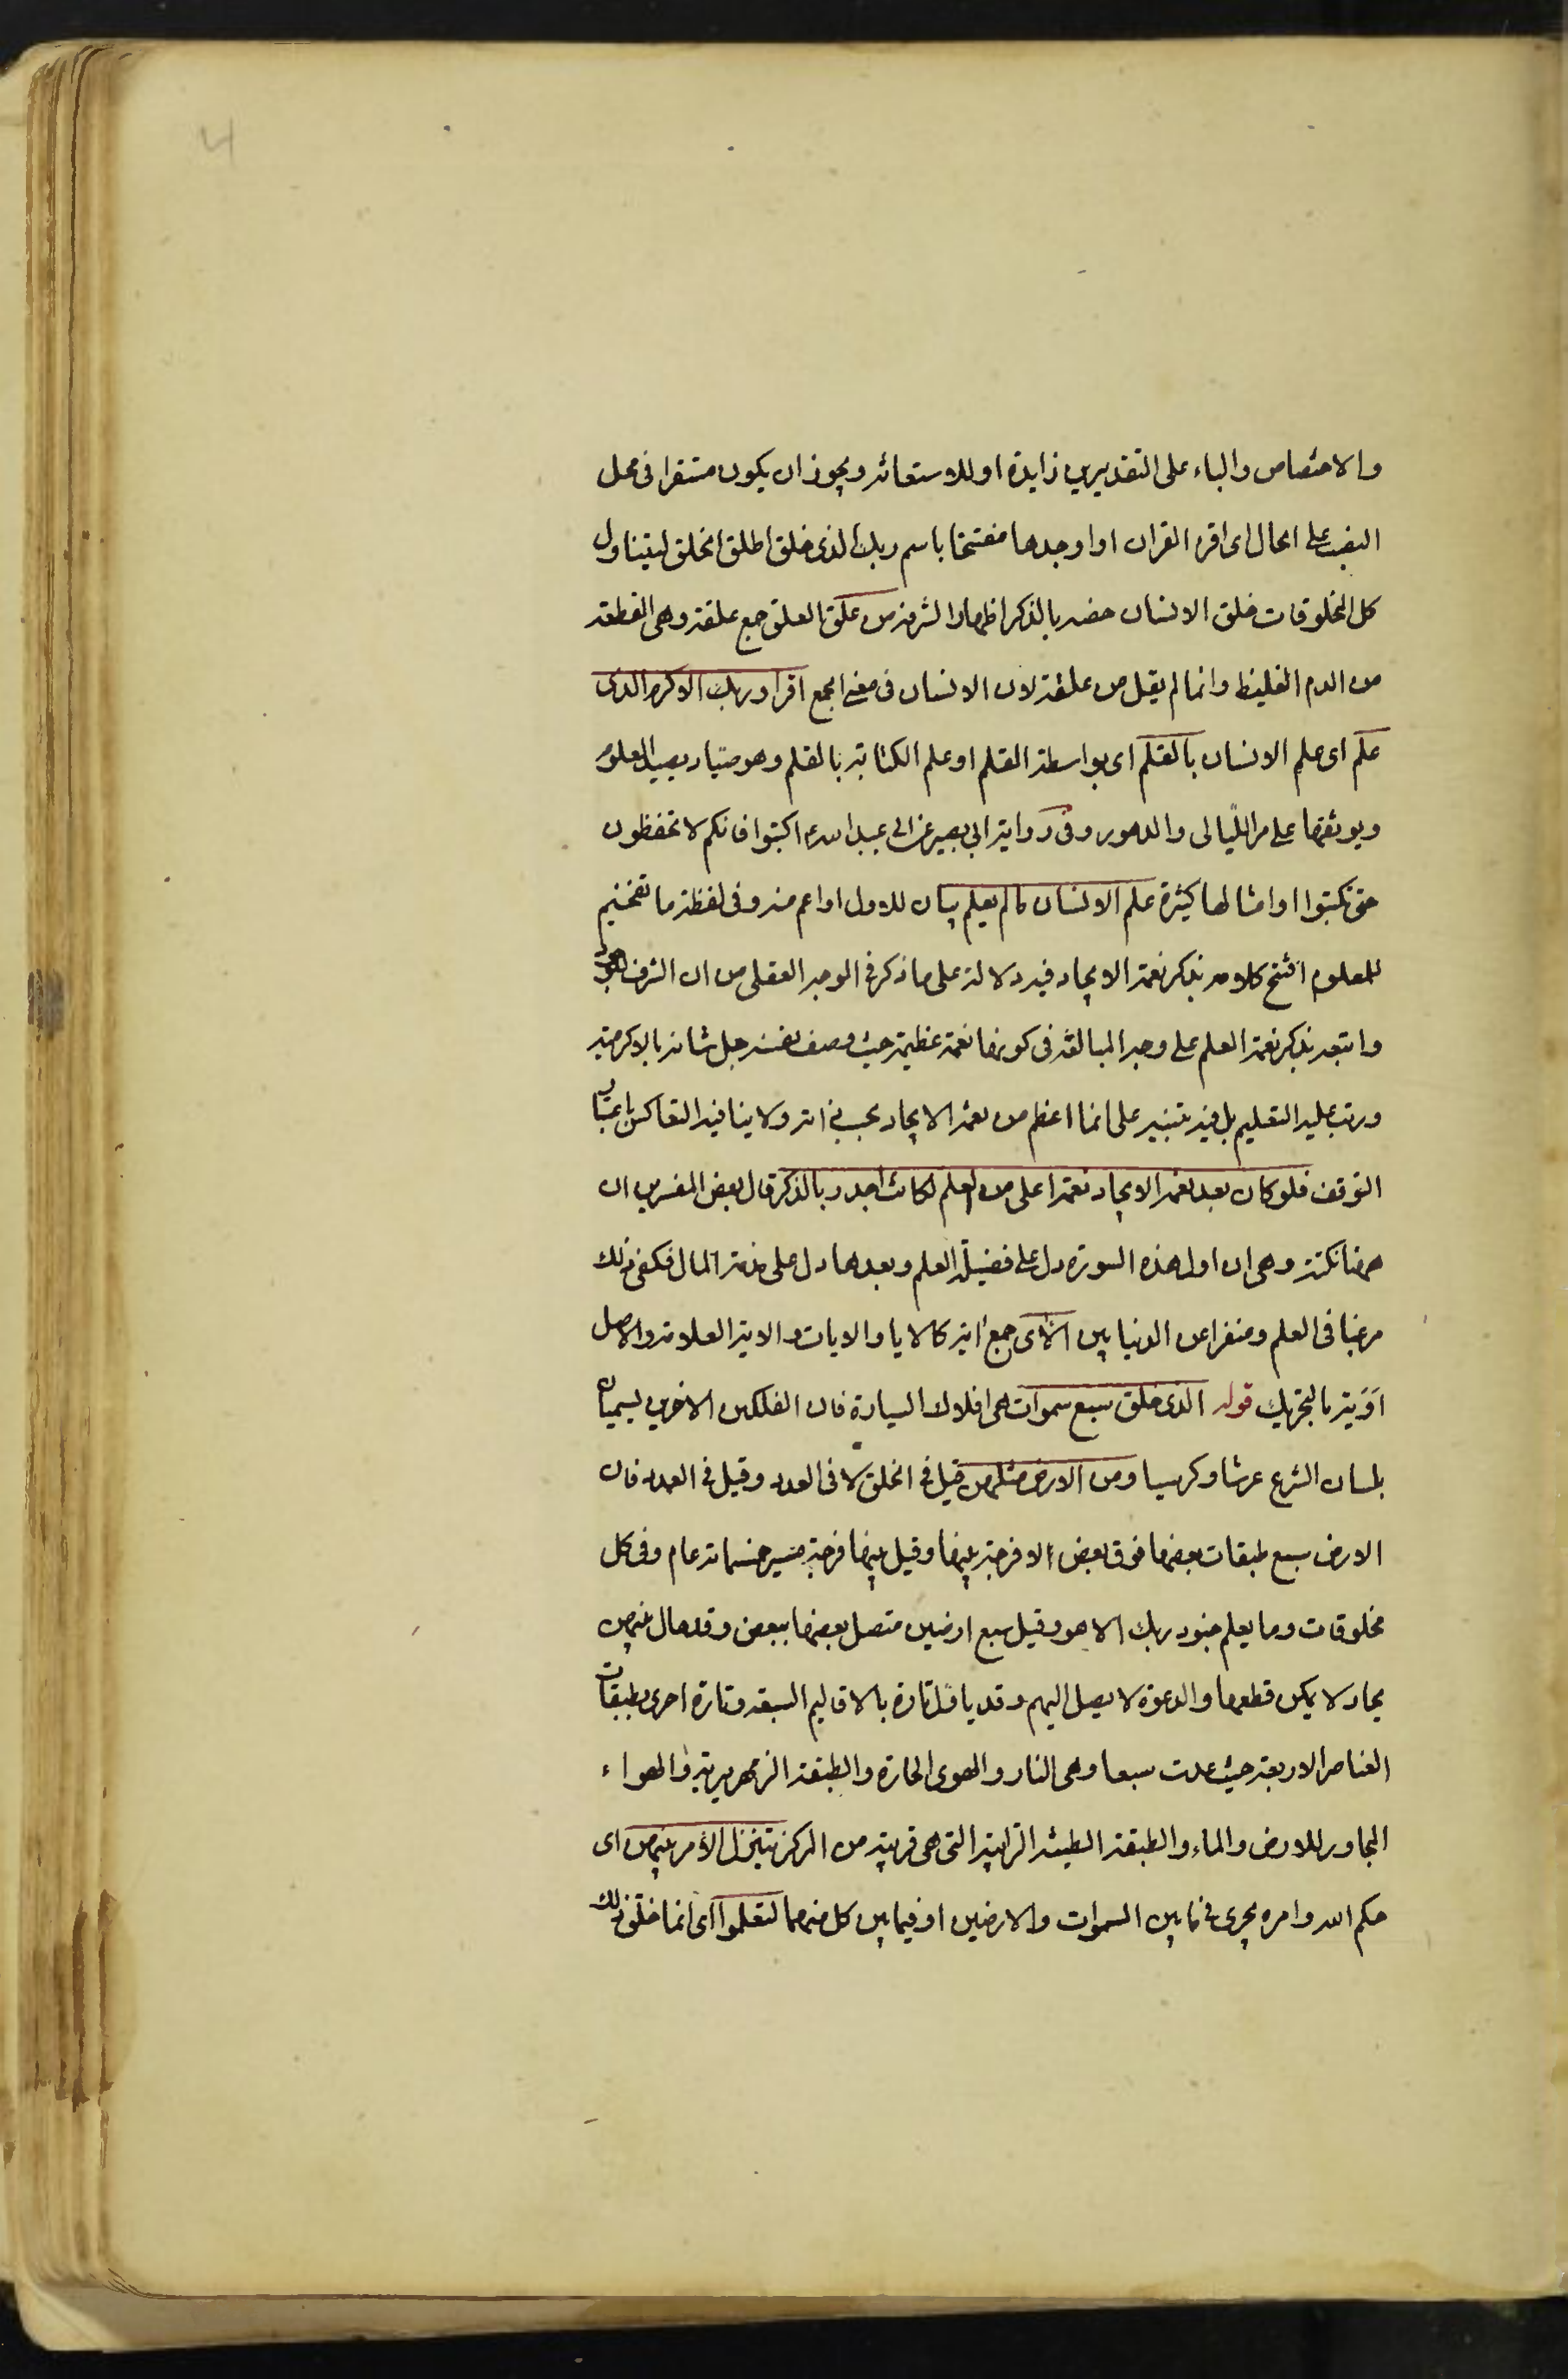 والاختصاص والباء على التقديرين زايدة او للاستعانه ويجوز ان يكون مستقرا فى محل
النصب على الحال اى اقرء القران او اوجدها مفتتحا باسم ربك الذى خلق اطلق الخلق ليتناول
كل المخلوقات خلق الانسان خصه بالذكر اظهارا لشرفه من علق العلق جمع علقة وهى القطعة
من الدم الغليظ وانما لم يقل من علقة لان الانسان فى معنى الجمع اقرا وربك الاكرم الذى
علم اى علم الانسان بالقلم اى بواسطة القلم او علم الكتابة بالقلم وهو صياد يصيد العلوم
ويوثقها على مر الليالى والدهور وفى رواية ابي بصير عن ابي عبد الله ع اكتبوا فانكم لا تحفظون
حتى تكتبوا وامثالها كثيرة علم الانسان مالم يعلم بيان للاول او اعم منه وفى لفظة ما تفخيم
للمعلوم افتتح كلامه بذكر نعمة الايجاد فيه دلالة على ما ذكر فى الوجه العقلى من ان الشرف للموجود
واتبعه بذكر نعمة العلم على وجه المبالغة فى كونها نعمة عظيمة حيث وصف نفسه جل شانه بالاكرمية
ورتب عليه التعليم بل فيه تنبيه على انها اعظم من نعمة الايجاد بحسب ذاته ولا ينافيه التعاكس باعتبار
التوقف فلو كان بعد نعمة الايجاد نعمة اعلى من العلم لكانت اجدر بالذكر قال بعض المفسرين ان
ههنا نكتة وهى ان اول هذه السورة دل على فضيلة العلم وبعدها دل على مذمة المال فكفى ذلك
مرغبا فى العلم ومنفرا عن الدنيا بين الاى جمع اية كالايا والايات والاية العلامة والاصل
اوية بالتحريك قوله الذى خلق سبع سموات هى افلاك السيارة فان الفلكين الاخرين يسميان
بلسان الشرع عرشا وكرسيا ومن الارض مثلهن قيل فى الخلق لا فى العدد وقيل فى العدد فان
الارض سبع طبقات بعضها فوق بعض لا فرجة بينها وقيل بينها فرجة مسير خمسمائة عام وفى كل
مخلوقات وما يعلم جنود ربك الا هو وقيل سبع ارضين متصل بعضها ببعض وقد حال بينهن
بحار لا يمكن قطعها والدعوة لا يصل اليهم وقد ياول تارة بالاقاليم السبعة وتارة اخرى بطبقات
العناصر الاربعة حيث عدت سبعا وهى النار والهوى الحارة والطبقة الزمهريرية والهواء
المجاور للارض والماء والطبقة الطينية الترابية التى هى قريبة من المركز يتنزل الامر بينهن اى
حكم الله وامره يجرى فيما بين السموات والارضين او فيما بين كل منهما لتعلموا اى انما خلق ذلك